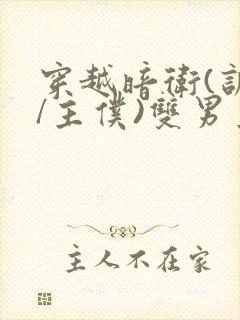 穿越暗衛(訓
/主僕)雙男主
主人不在家